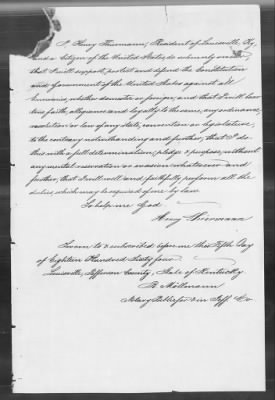 I, Henry Thiemann, Resident of Louisville, Ky,
and a citizen of the United States, do solemnly swear,
that I will support, protect and defend the Constitution
and Government of the United States against all
enemies, whether domestic or foreign, and that I will bear
true faith, allegiance and loyalty to the same, any ordinance,
resolution or law of any State, convention or legislature,
to the contrary notwithstanding and further, that I do
this with a full determination, pledge & purpose, without
any mental reservation or evasion whatsoever and
further, that I will well and faithfully perform all the
duties, which may be required of me by law.
So help me God
Henry Thiemann
Sworn to & subscribed before me this Fifth Day
of Eighteen Hundred Sixty four
Louisville, Jefferson County, State of Kentucky
Notary Public for & in Jeff Co